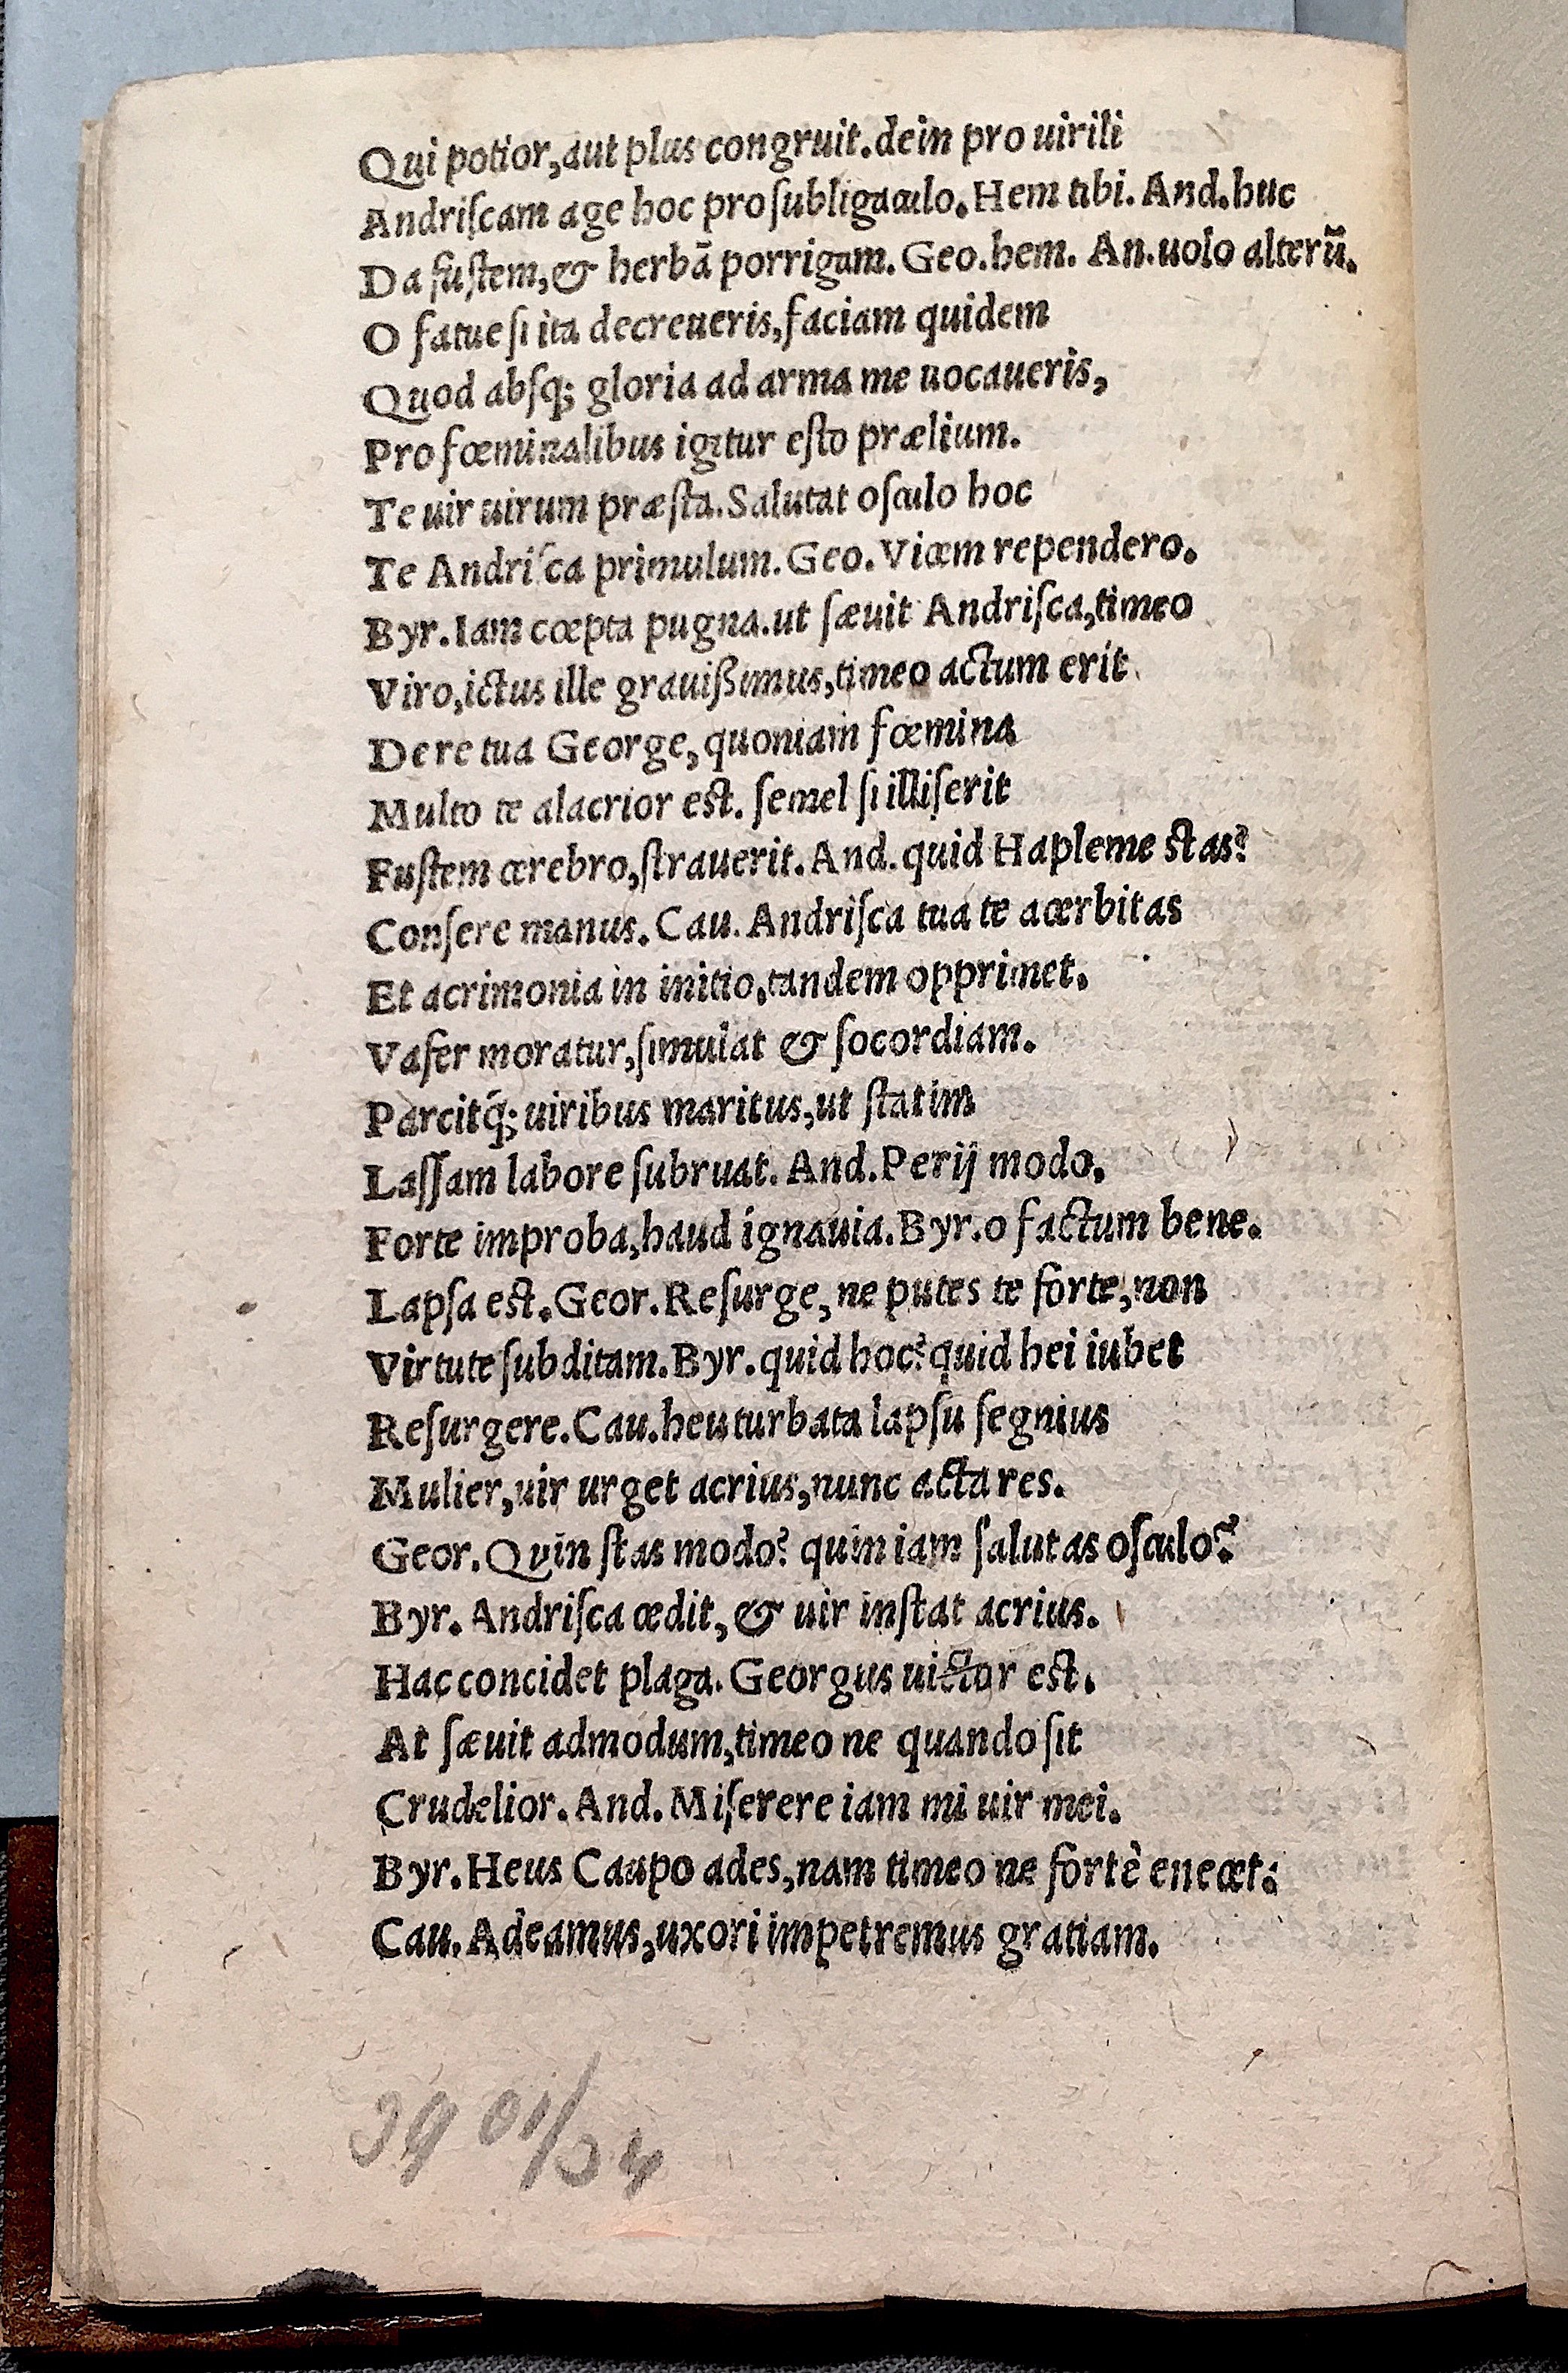 Qui potior,aut plus congruit.dein pro uirili
Andriſcam age hoc pro ſubligaculo.Hem tibi. And.huc
Da fuſtem,& herbā porrigam. Geo.hem. An.uolo alterū.
O fatue ſi ita decreueris,faciam quidem
Quod abſq; gloria ad arma me uocaueris,
Pro fœminalibus igitur eſto prælium.
Te uir uirum præſta.Salutat oſculo hoc
Te Andriſca primulum. Geo.Vicem rependero.
Byr.Iam cœpta pugna.ut ſæuit Andriſca,timeo
Viro,ictus ille grauißimus,timeo actum erit
De re tua George,quoniam fœmina
Multo te alacrior est. ſemel ſi illiſerit
Fuſtem cerebro,ſtrauerit.And.quid Hapleme stas?
Conſere manus. Cau. Andriſca tua te acerbitas
Et acrimonia in initio,tandem opprimet.
Vafer moratur,ſimulat & ſocordiam.
Parcitq́; uiribus maritus,ut ſtatim
Laſſam labore ſubruat. And.Perij modo,
Forte improba,haud ignauia.Byr.o factum bene.
Lapſa est.Geor.Reſurge,ne putes te forte,non
Virtute ſubditam.Byr.quid hoc?quid hei iubet
Reſurgere.Cau.heu turbata lapſu ſegnius
Mulier,uir urget acrius,nunc acta res.
Geor.Qvin ſtas modo? quin iam ſalutas oſculo?
Byr. Andriſca cedit,& uir inſtat acrius.
Hac concidet plaga. Georgus uictor est.
At ſæuit admodum,timeo ne quando ſit
Crudelior. And. Miſerere iam mi uir mei.
Byr.Heus Caupo ades,nam timeo ne fortè enecet:
Cau. Adeamus,uxori impetremus gratiam.
39 01/34